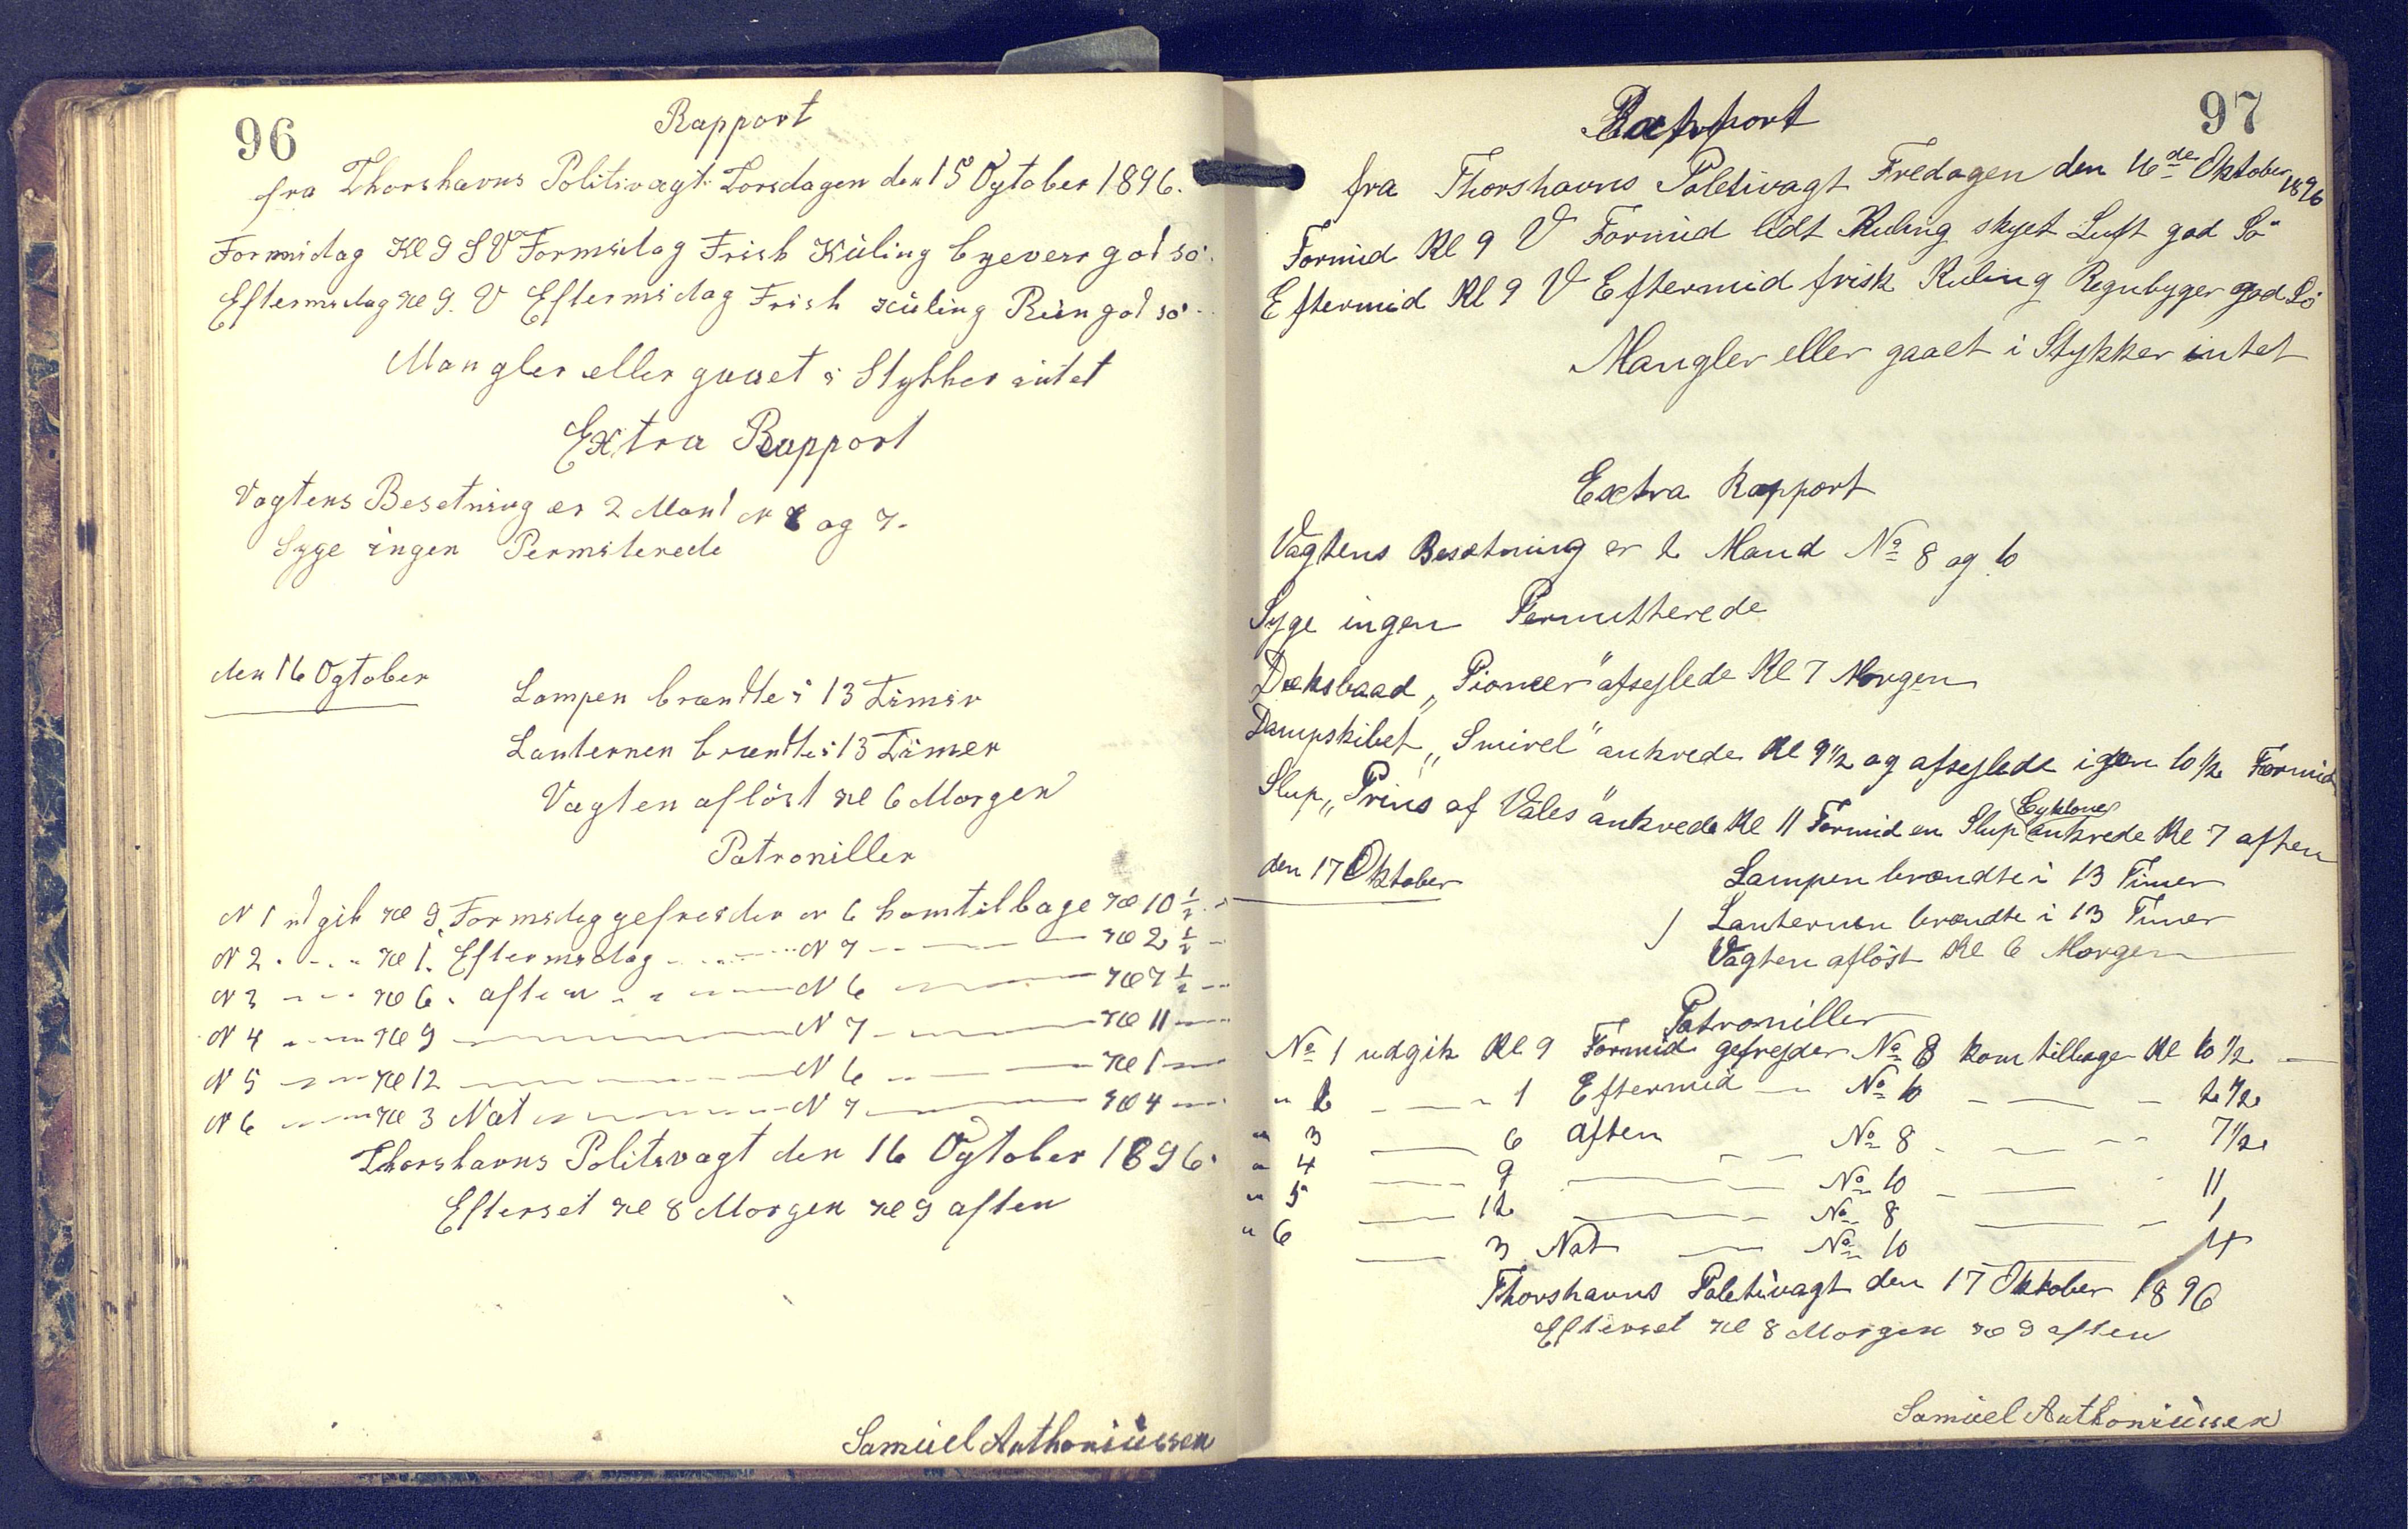 96
Rapport
fra Thorshavns Politivagt Torsdagen den 15 Ogtober 1896.
Formidag Kl 9 SV Formidag Frisk Küling byeveir god sö.
Eftermidag Kl 9. V Eftermidag Frisk Küling Rein god sö.
Mangler eller gaaet i Stykker intet
Extra Rapport
Vagtens Besetning er 2 Mand N 6 og 7.
Syge ingen Permiterede
den 16 Ogtober
Lampen brændte i 13 Timer
Lanternen brændte i 13 Timer
Vagten aflöst Kl 6 Morgen
Patroniller
N 1 udgik Kl 9. Formidag gefreider N 6 komtilbage Kl 10 1/2
N 2 - - - Kl 1. Eftermidag - - - N 7 - - - Kl 2 1/2
N 3 - - - Kl 6. aften - - - N 6 - - - Kl 7 1/2
N 4 - - - Kl 9 - - - N 7 - - - Kl 11
N 5 - - - Kl 12 - - - N 6 - - - Kl 1
N 6 - - - Kl 3 Nat - - - N 7 - - - Kl 4
Thorshavns Politivagt den 16 Ogtober 1896.
Efterset Kl 8 Morgen Kl 9 aften
Samüel Anthoniüssen
97
Rapport
fra Thorshavns Poletivagt Fredagen den 16de Oktober 1896
Formid Kl 9 V Formid lidt Kuling skyet Luft god Sö
Eftermid Kl 9 V Eftermid frisk Kuling Regnbyger god Sö
Mangler eller gaaet i Stykker intet
Extra Rapport
Vagtens Besætning er 2 Mand No 8 og 10
Syge ingen Permitterede
Dæksbaad „Pioneer" afsejlede Kl 7 Morgen
Dampskibet „Smirel" ankrede Kl 9 1/2 og afsejlede igen 10 1/2 Formid
Slup „Prins af Vales" ankrede Kl 11 Formid en Slup Cyklone ankrede Kl 7 aften
den 17 Oktober
Lampen brændte i 13 Timer
Lanternen brændte i 13 Timer
Vagten aflöst Kl 6 Morgen
Patroniller
No 1 udgik Kl 9 Formid gefrejder No 8 kom tilbage Kl 10 1/2
" 2 - - - 1 Eftermid - No 10 - - - 2 1/2
" 3 - - - 6 aften - - No 8 - - - 7 1/2
" 4 - - - 9 - - - No 10 - - - 11
" 5 - - - 12 - - - No 8 - - - 1
" 6 - - - 3 Nat - - - No 10 - - - 4
Thorshavns Poletivagt den 17 Oktober 1896
Efterset Kl 8 Morgen Kl 9 aften
Samüel Anthoniüssen